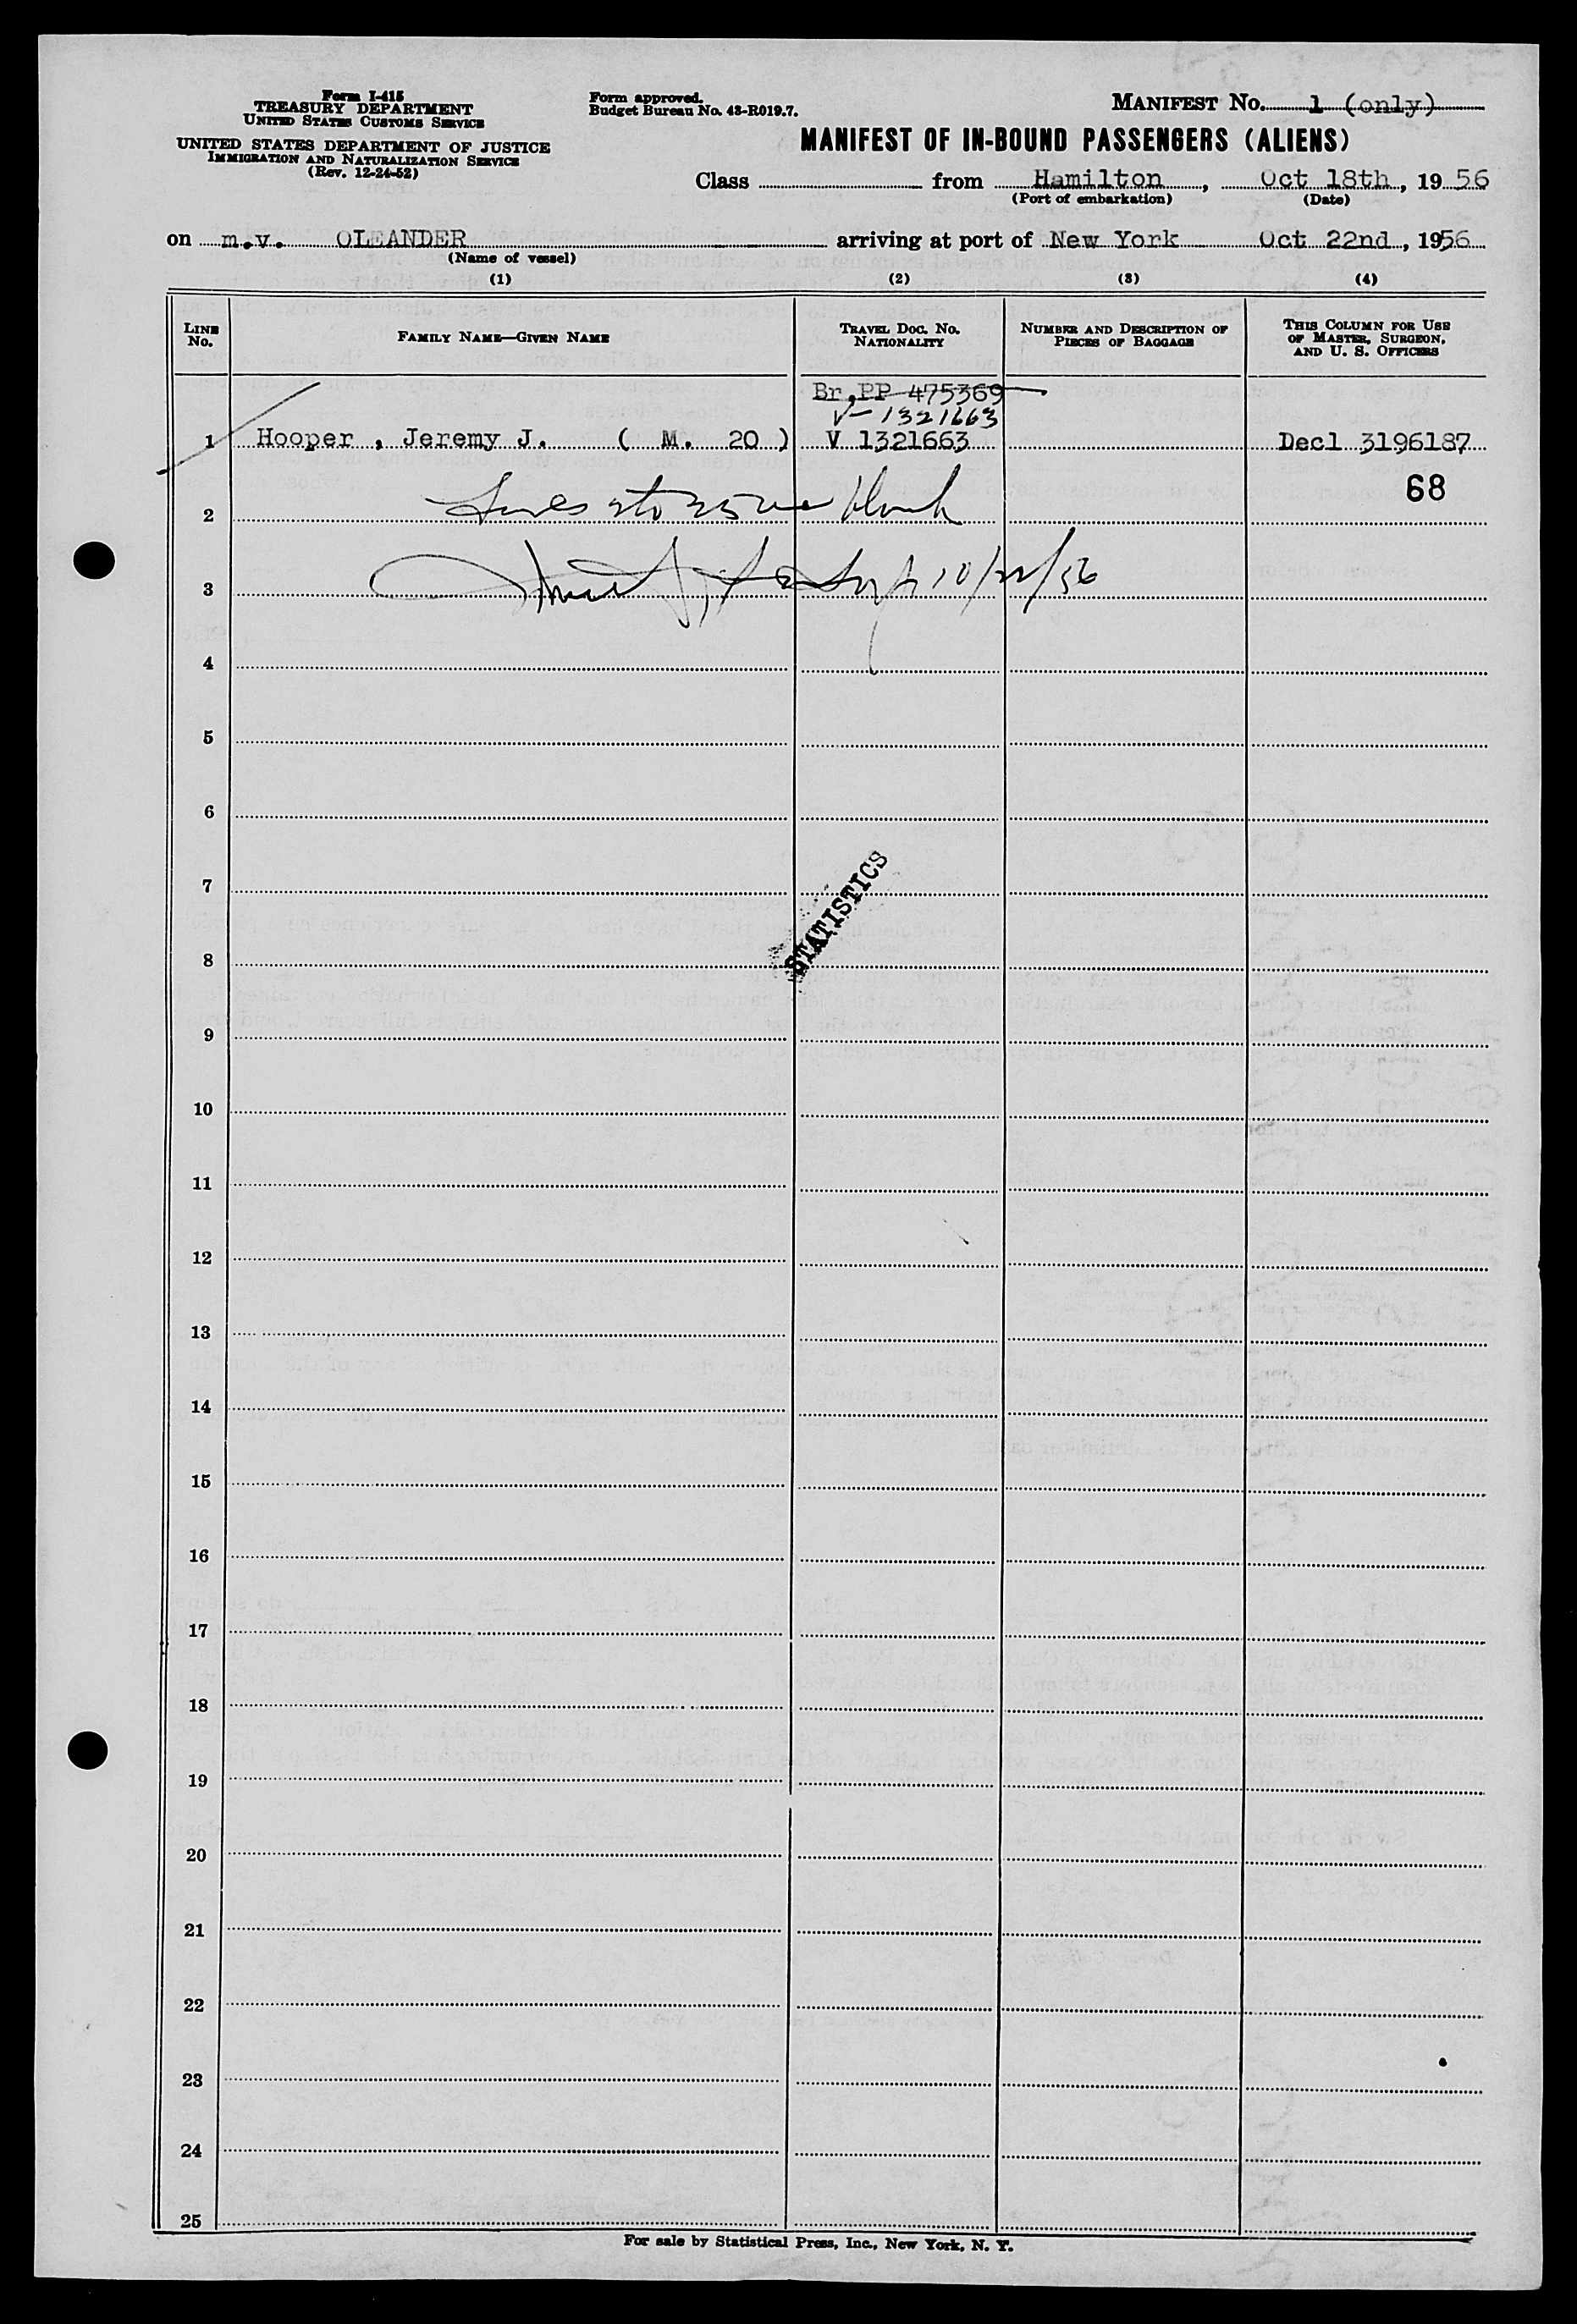 Form I-415
TREASURY DEPARTMENT
UNITED STATES CUSTOMS SERVICE
UNITED STATES DEPARTMENT OF JUSTICE
IMMIGRATION AND NATURALIZATION SERVICE
(Rev. 12-24-52)
Form approved.
Budget Bureau No. 43-R019.7.
MANIFEST NO. 1 (only)
MANIFEST OF IN-BOUND PASSENGERS (ALIENS)
Class from Hamilton, Oct 18th, 1956
(Port of embarkation) (Date)
on m.v. OLEANDER arriving at port of New York Oct 22nd, 1956
(Name of vessel)
(1) (2) (3) (4)
LINE NO.
FAMILY NAME—GIVEN NAME
TRAVEL DOC. NO. NATIONALITY
NUMBER AND DESCRIPTION OF PIECES OF BAGGAGE
THIS COLUMN FOR USE OF MASTER, SURGEON, AND U. S. OFFICERS
Br,PP 475369
V-1321663
1 Hooper , Jeremy J. ( M. 20 ) V 1321663 Decl 3196187
68
2 Lines 2 to 25 Blank
3 10/22/56
4
5
6
7
STATISTICS
8
9
10
11
12
13
14
15
16
17
18
19
20
21
22
23
24
25
For sale by Statistical Press, Inc., New York, N. Y.